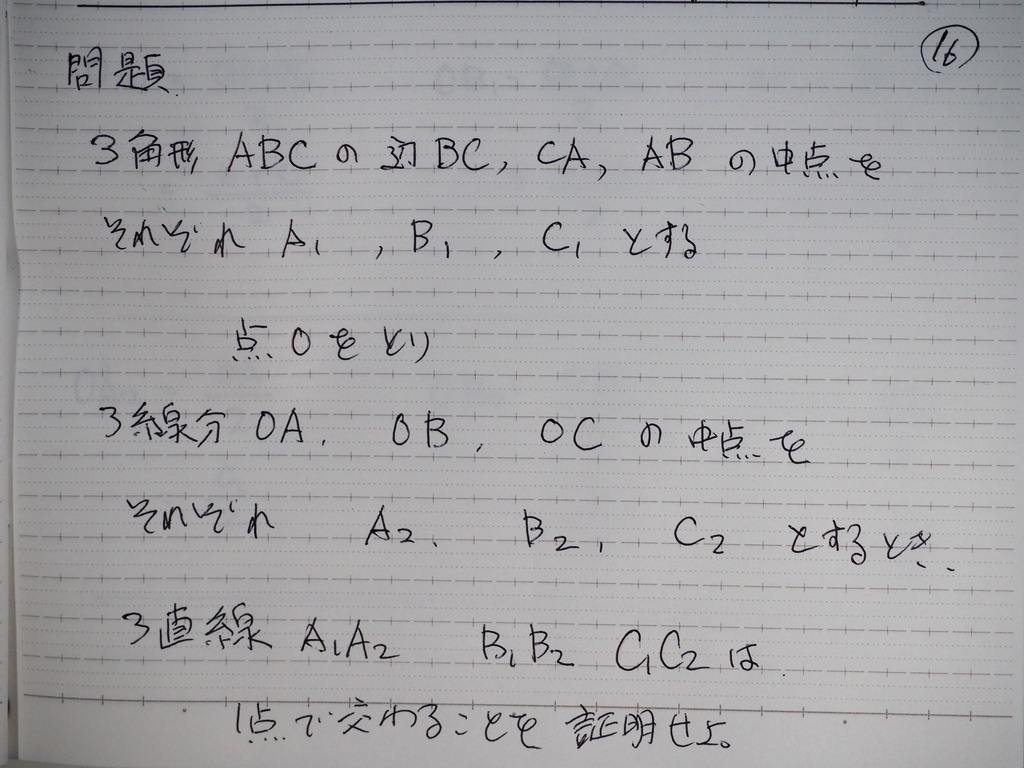 ⑯
問題
3角形 ABCの辺BC, CA, ABの中点を
それぞれ A₁, B₁, C₁とする
点Oをとり
3線分OA, OB, OCの中点を
それぞれ A₂, B₂, C₂とするとき..
3直線 A₁A₂ B₁B₂ C₁C₂は
1点で交わることを証明せよ。